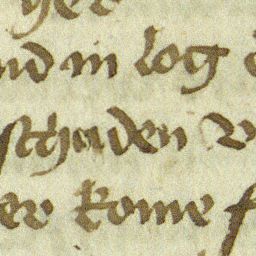 nd in log
schaden v
er kome f